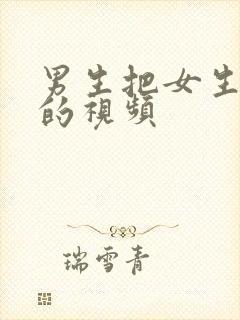 男生把女生
的視頻
瑞雪青